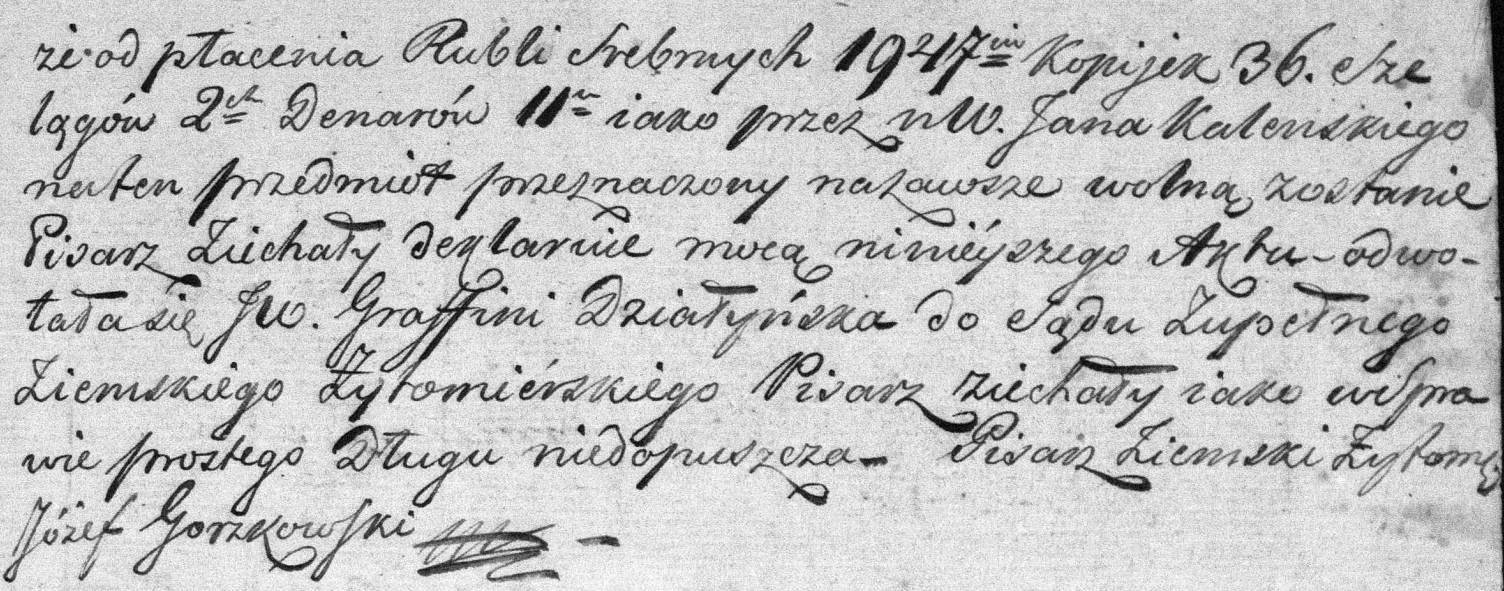 że od płacenia Rubli Srebrnych 1947m Kopijek 36. Sze
lągów 2ch Denarów 11u iako przez nW. Jana Kalenskiego
na ten przedmiot przeznaczony na zawsze wolną zostanie
Pisarz Ziechały deklaruie mocą ninieyszego Aktu - odwo-
łała się JW. Graffini Działyńska do Sądu Zupełnego
Ziemskiego Żytomiérskiego Pisarz Ziechały iako w Spra
wie prostego Długu niedopuszcza - Pisarz Ziemski Żytom
Józef Gorzkowski -